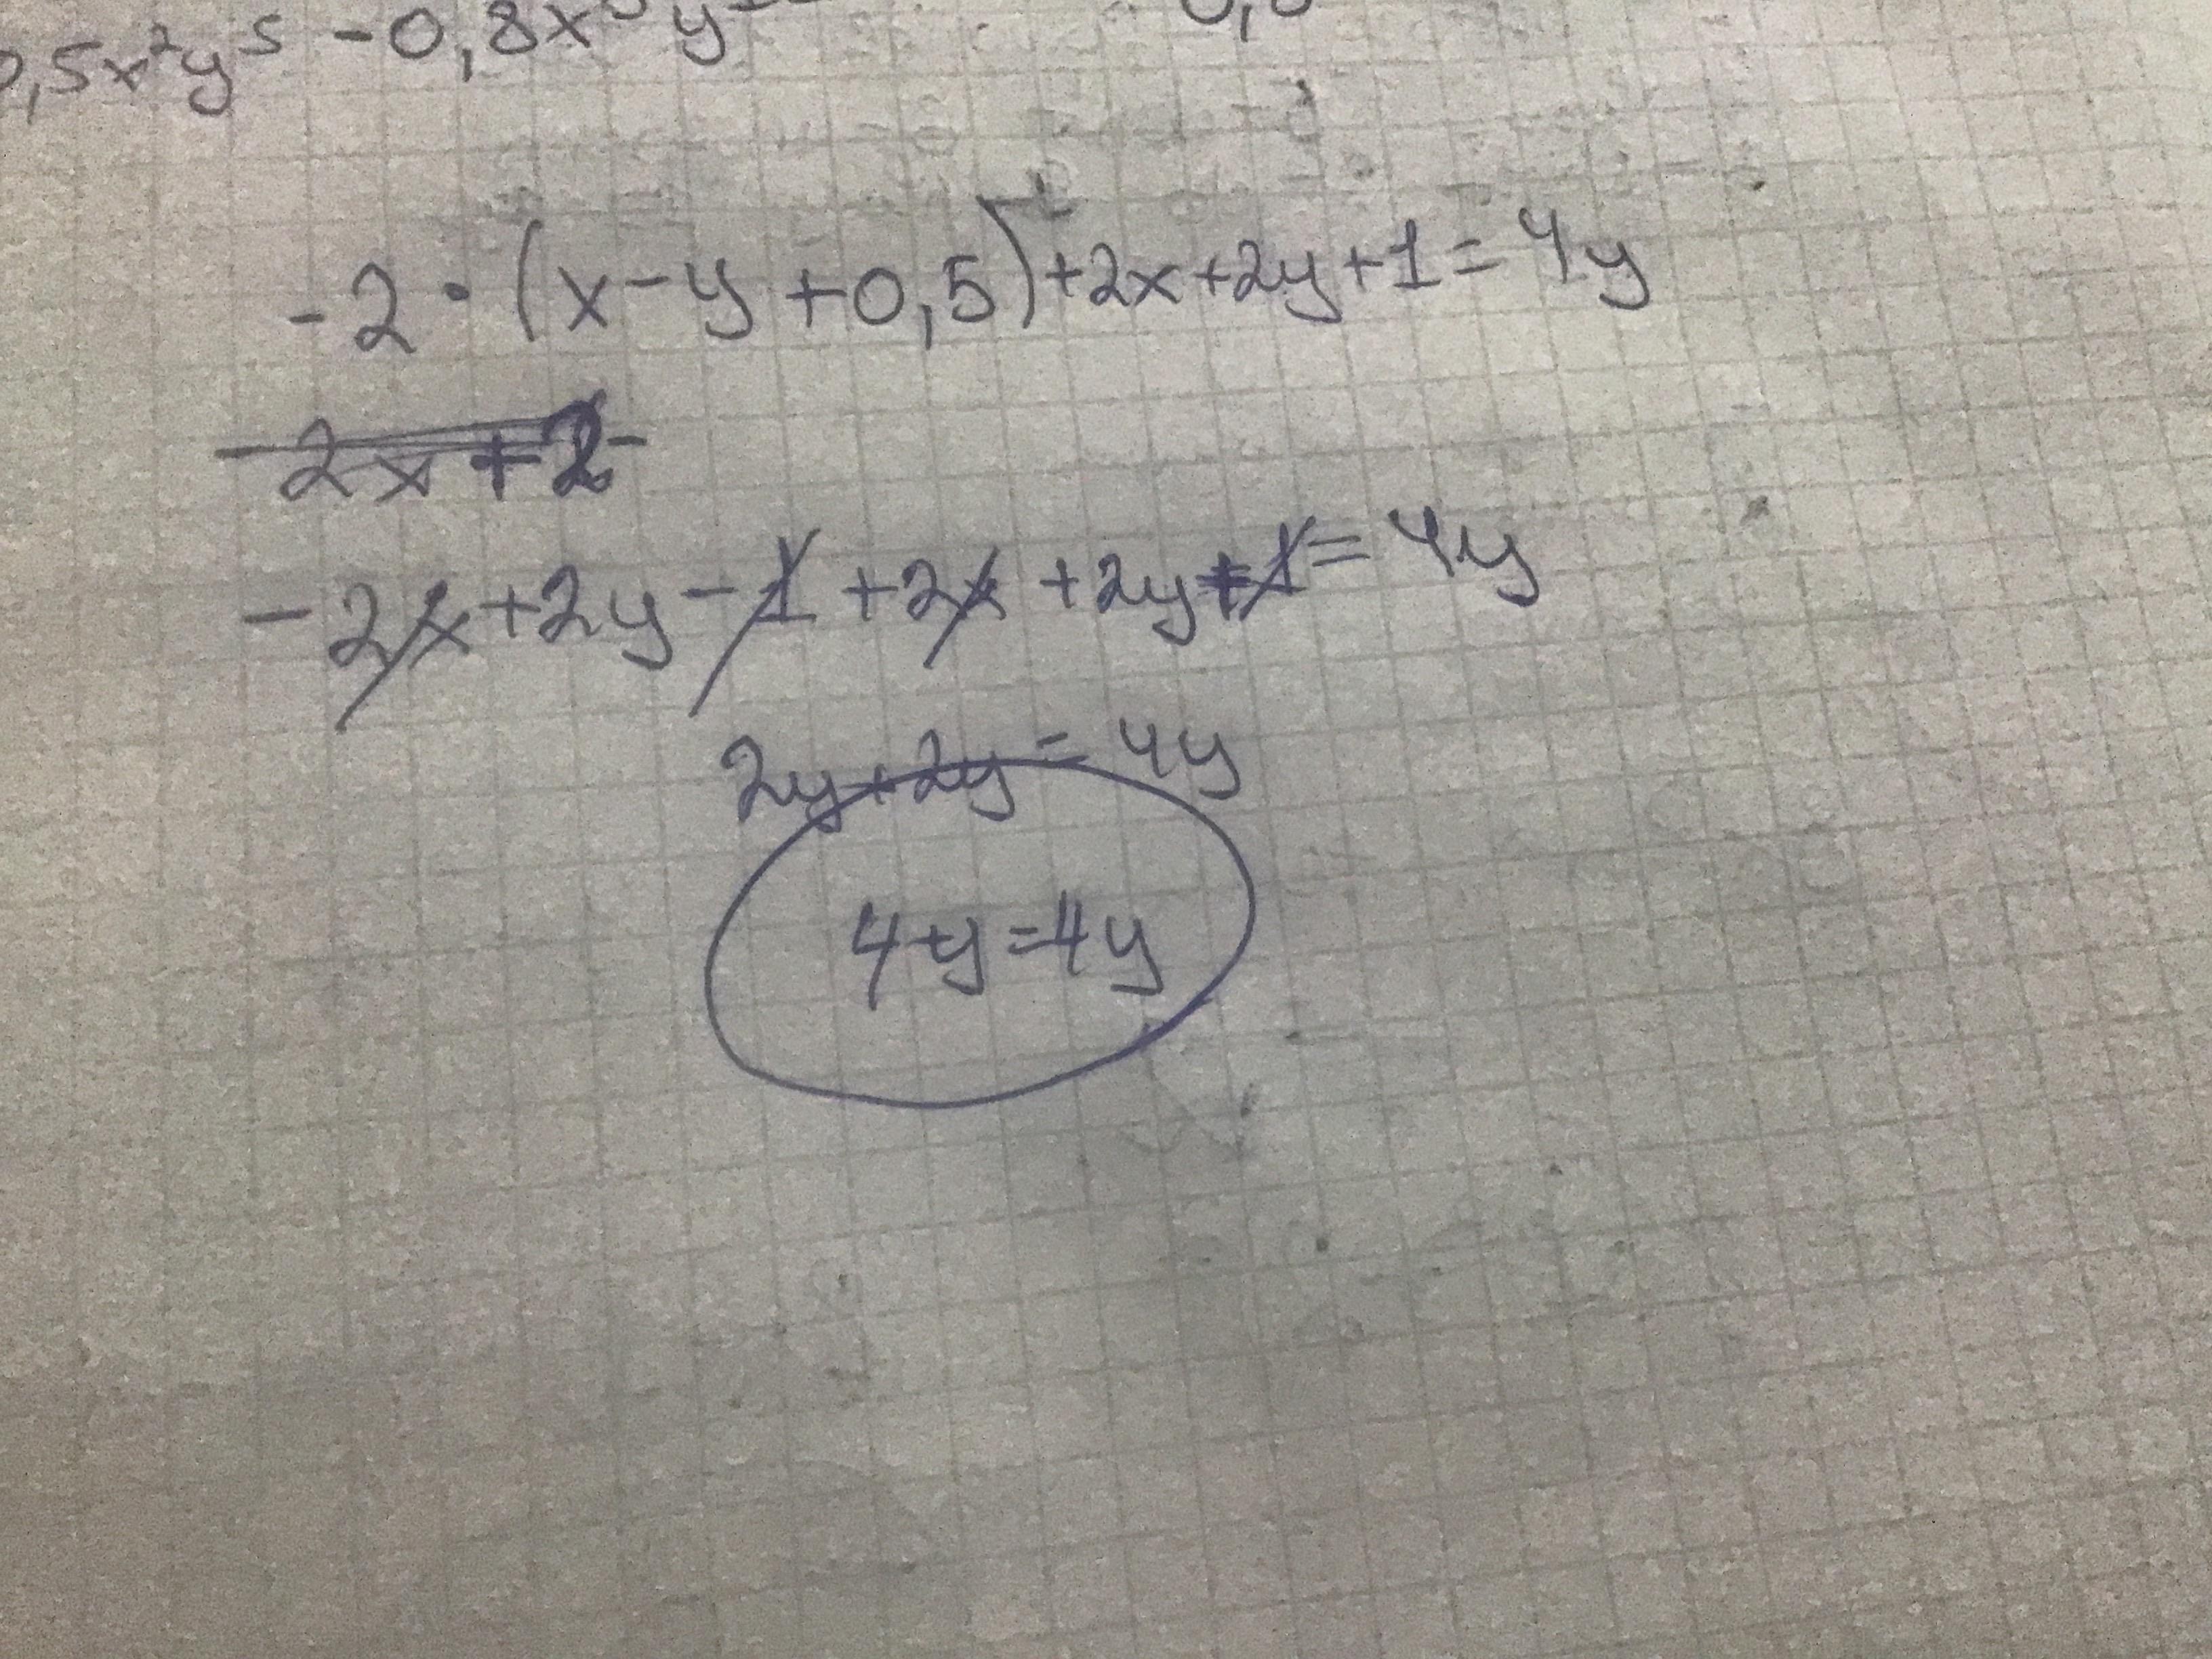 0,5x²y⁵ - 0,8x y
-2 · (x - y + 0,5) + 2x + 2y + 1 = 4y
-2x + 2y - 1 + 2x + 2y + 1 = 4y
2y + 2y = 4y
4y = 4y